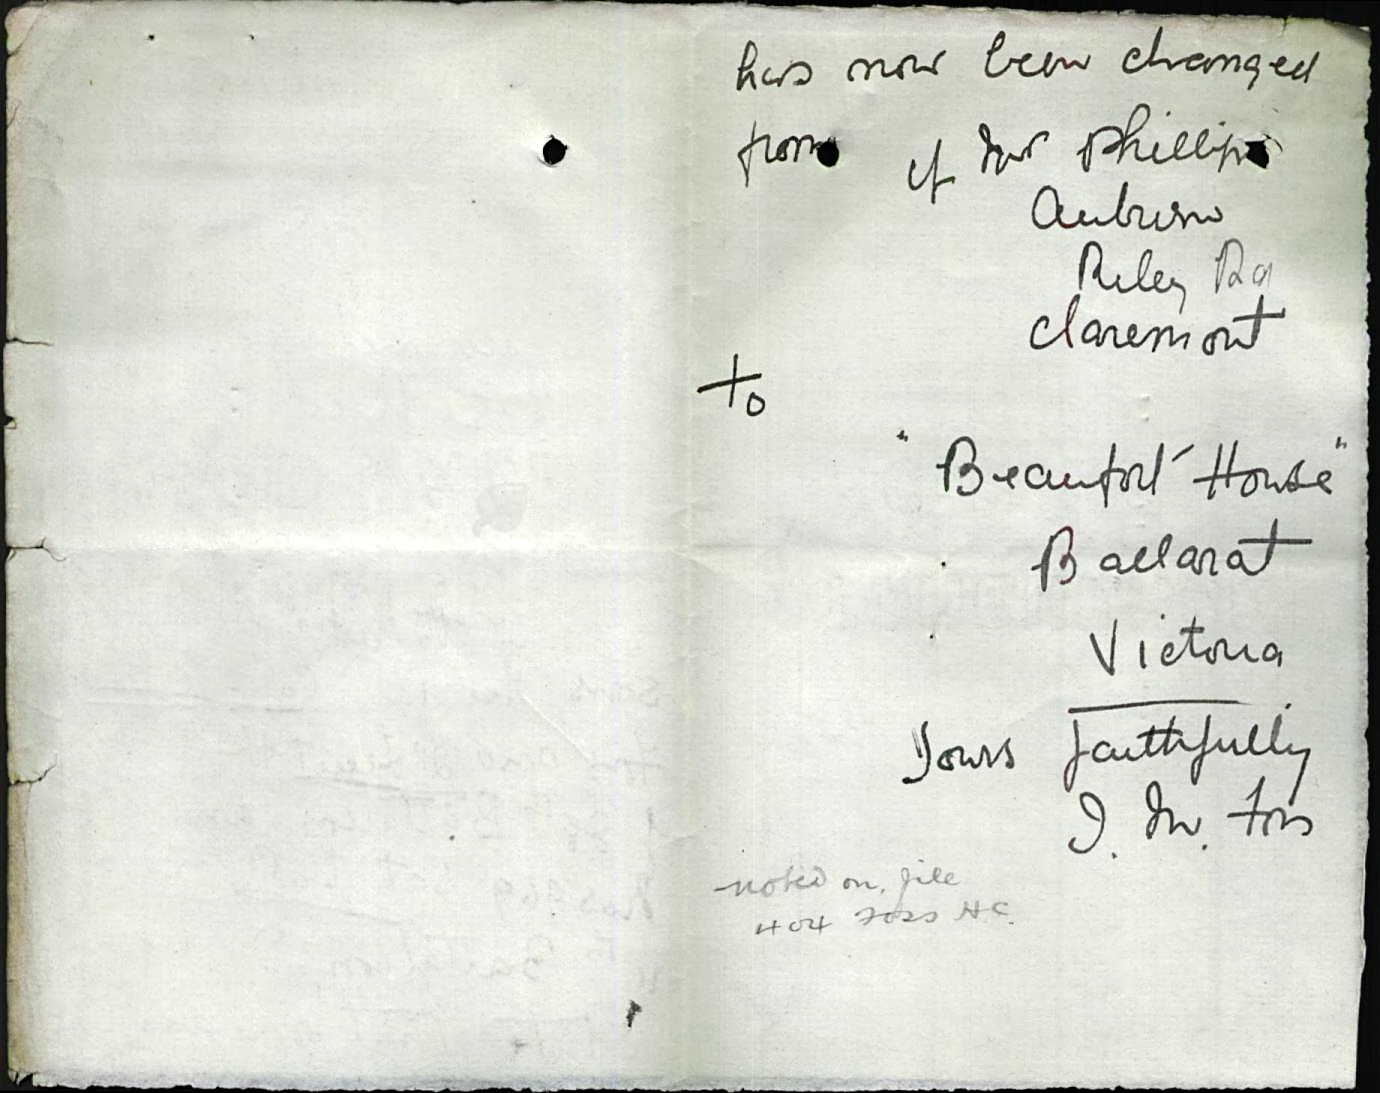 has now been changed
from c/o Mr Phillips
Auburn
Riley Rd
Claremont
to
"Beaufort House"
Ballarat
Victoria
Yours faithfully
J. M. Foss
noted on file
404 Foss H.C.